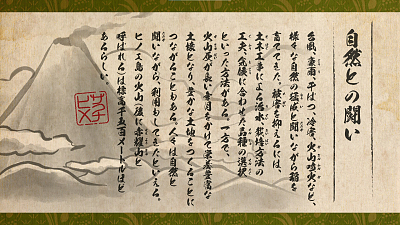 自然との闘い
台風、豪雨、干ばつ、冷害、火山噴火など、
様々な自然の猛威と闘いながら稲を
育ててきた。被害を抑えるには、
土木工事による治水、栽培方法の
工夫、気候に合わせた品種の選択
といった方法がある。一方で、
火山灰が長い年月をかけて栄養豊富な
土壌となり、豊かな土地をつくることに
つながることもある。人々は自然と
闘いながら、利用もしてきたといえる。
ヒノエ島の火山(俗に赤耀山と
呼ばれる)は標高千五百メートルほど
あるらしい。
サクナヒメ